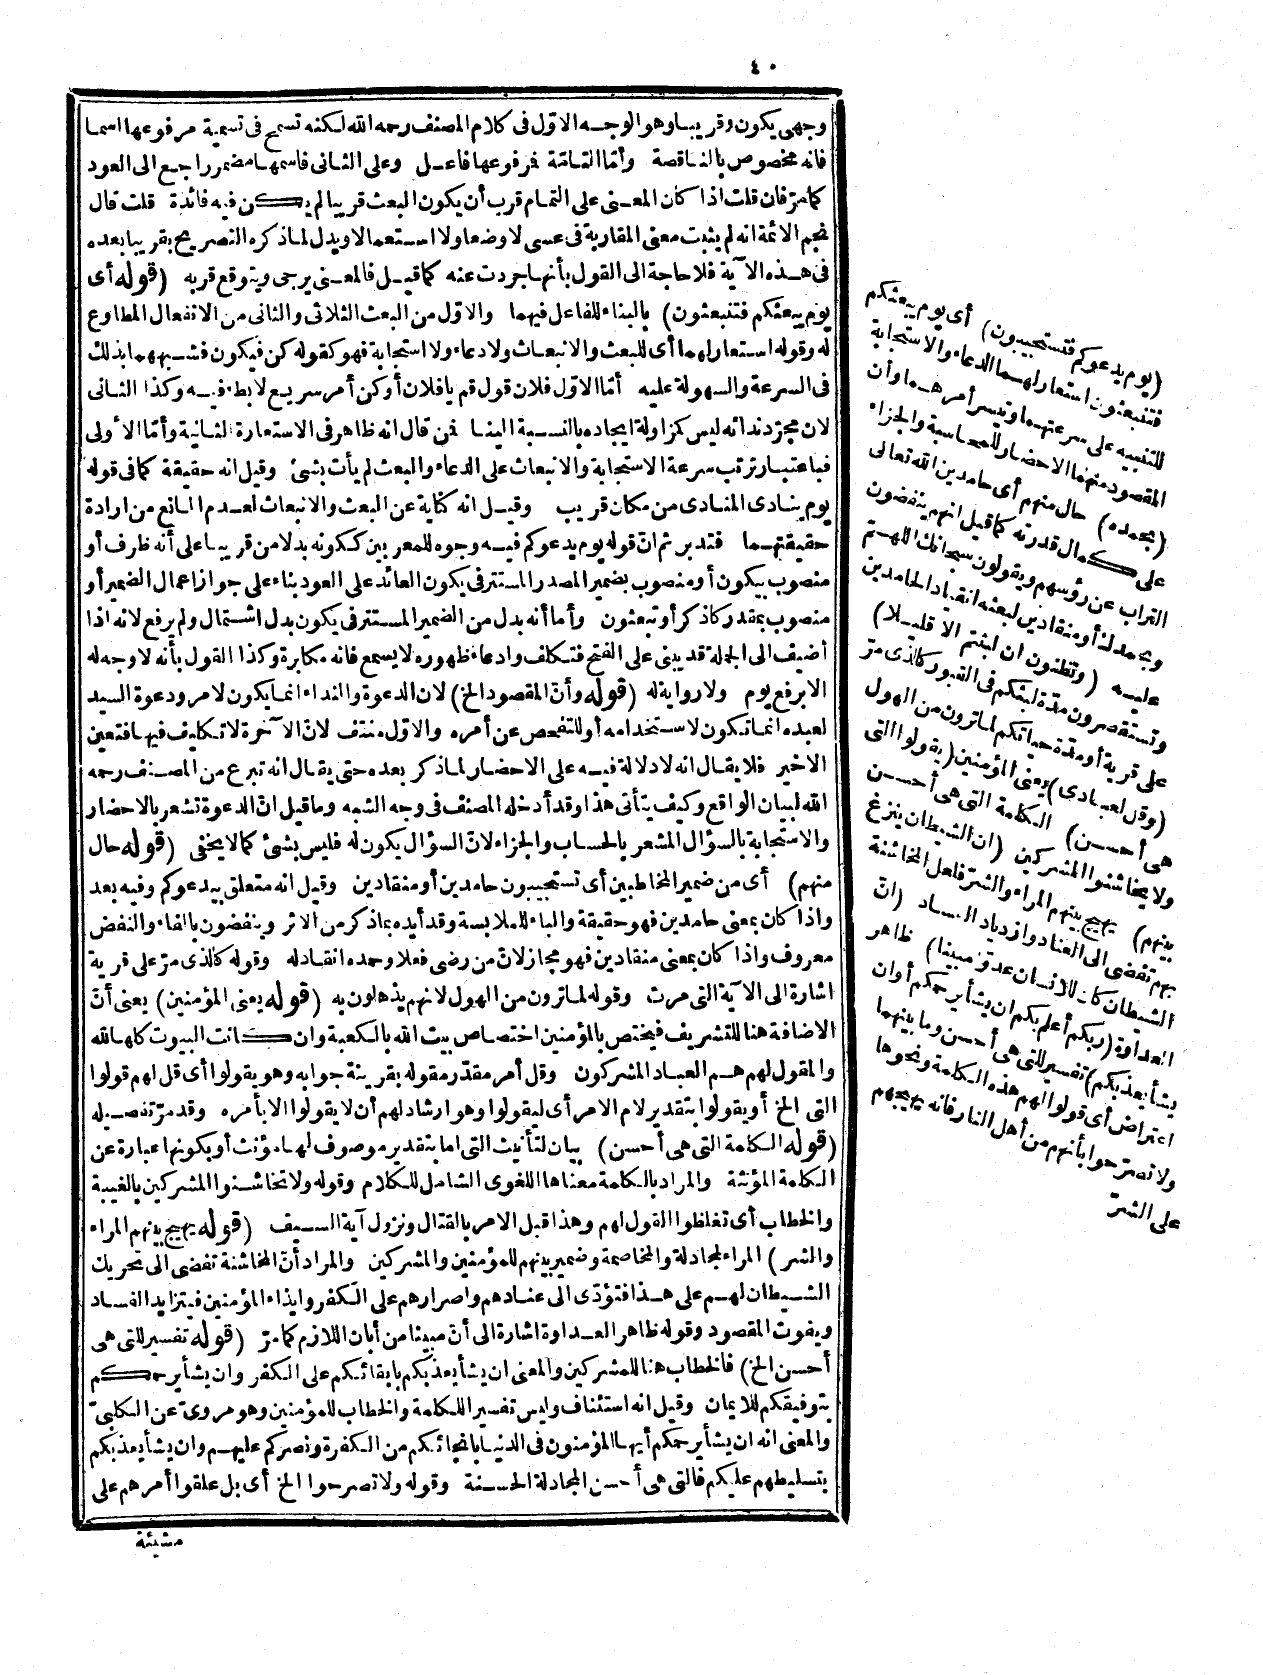 ٤٠
وجهى يكون وقريبا وهو الوجه الاوّل فى كلام المصنف رحمه الله لكنه تسمح فى تسمية مرفوعها اسما
فانه مخصوص بالناقصة وأمّا التامّة فمرفوعها فاعل وعلى الثانى فاسمها مضمر راجع الى العود
كمامرّ فان قلت اذا كان المعنى على التمام قرب أن يكون البعث قريبا لم يكن فيه فائدة قلت قال
نجم الائمة انه لم يثبت معنى المقاربة فى عسى لا وضعا ولا استعمالا ويدل لماذكره التصريح بقريبا بعده
فى هذه الآية فلا حاجة الى القول بأنها جردت عنه كماقيل فالمعنى يرجى ويتوقع قربه (قوله أى
يوم يبعثكم فتنبعثون) بالبناء للفاعل فيهما والاوّل من البعث الثلاثى والثانى من الانفعال المطاوع
له وقوله استعار لهما أى للبعث والانبعاث ولا دعاء ولا استجابة فهو كقوله كن فيكون فشبههما بذلك
فى السرعة والسهولة عليه أمّا الاوّل فلان قول قم يافلان أو كن أمر سريع لا بطء فيه وكذا الثانى
لان مجرّد ندائه ليس كمزاولة ايجاده بالنسبة الينا فمن قال انه ظاهر فى الاستعارة الثانية وأمّا الأولى
فباعتبار ترتب سرعة الاستجابة والانبعاث على الدعاء والبعث لم يأت بشئ وقيل انه حقيقة كمافى قوله
يوم ينادى المنادى من مكان قريب وقيل انه كناية عن البعث والانبعاث لعدم المانع من ارادة
حقيقتهما فتدبر ثم انّ قوله يوم يدعوكم فيه وجوه للمعربين ككونه بدلا من قريبا على أنه ظرف أو
منصوب بيكون أو منصوب بضمير المصدر المستتر فى يكون العائد على العود بناء على جواز اعمال الضمير أو
منصوب بمقدر كاذكر أو تبعثون وأما أنه بدل من الضمير المستتر فى يكون بدل اشتمال ولم يرفع لانه اذا
أضيف الى الجملة قد يبنى على الفتح فتكلف وادعاء ظهوره لا يسمع فانه مكابرة وكذا القول بأنه لا وجه له
الا برفع يوم ولا رواية له (قوله وأنّ المقصود الخ) لان الدعوة والنداء انما يكون لامر ودعوة السيد
لعبده انما تكون لاستخدامه أو للتفحص عن أمره والاوّل منتف لانّ الآخرة لا تكليف فيها فتعين
الاخير فلا يقال انه لا دلالة فيه على الاحضار لماذكر بعده حتى يقال انه تبرع من المصنف رحمه
الله لبيان الواقع وكيف يتأتى هذا وقد أدخله المصنف فى وجه الشبه وماقيل انّ الدعوة تشعر بالاحضار
والاستجابة بالسؤال المشعر بالحساب والجزاء لانّ السؤال يكون له فليس بشئ كمالا يخفى (قوله حال
منهم) أى من ضمير المخاطبين أى تستجيبون حامدين أو منقادين وقيل انه متعلق بيدعوكم وفيه بعد
واذا كان بمعنى حامدين فهو حقيقة والباء للملابسة وقد أيده بماذكر من الاثر وينفضون بالفاء والنفض
معروف واذا كان بمعنى منقادين فهو مجاز لانّ من رضى فعلا وحمده انقاد له وقوله كالذى مرّ على قرية
اشارة الى الآية التى مرت وقوله لما ترون من الهول لانهم يذهلون به (قوله يعنى المؤمنين) يعنى أنّ
الاضافة هنا للتشريف فيختص بالمؤمنين اختصاص بيت الله بالكعبة وان كانت البيوت كلها لله
والمقول لهم هم العباد المشركون وقل أمر مقدّر مقوله بقرينة جوابه وهو يقولوا أى قل لهم قولوا
التى الخ أو يقولوا بتقدير لام الامر أى ليقولوا وهو ارشاد لهم أن لا يقولوا الا بأمره وقد مرّ تفصيله
(قوله الكلمة التى هى أحسن) بيان لتأنيث التى اما بتقدير موصوف لها مؤنث أو بكونها عبارة عن
الكلمة المؤنثة والمراد بالكلمة معناها اللغوى الشامل للكلام وقوله ولا تخاشنوا المشركين بالغيبة
والخطاب أى تغلظوا القول لهم وهذا قبل الامر بالقتال ونزول آية السيف (قوله يهيج بينهم المراء
والشر) المراء المجادلة والمخاصمة وضمير بينهم للمؤمنين والمشركين والمراد أنّ المخاشنة تفضى الى تحريك
الشيطان لهم على هذا فتؤدّى الى عنادهم واصرارهم على الكفر وايذاء المؤمنين فيتزايد الفساد
ويفوت المقصود وقوله ظاهر العداوة اشارة الى أنّ مبينا من أبان اللازم كمامرّ (قوله تفسير للتى هى
أحسن الخ) فالخطاب هنا للمشركين والمعنى ان يشأ يعذبكم بابقائكم على الكفر وان يشأ يرحمكم
بتوفيقكم للايمان وقيل انه استئناف وليس تفسيرا للكلمة والخطاب للمؤمنين وهو مروىّ عن الكلبىّ
والمعنى انه ان يشأ يرحمكم أيها المؤمنون فى الدنيا بانجائكم من الكفرة ونصركم عليهم وان يشأ يعذبكم
بتسليطهم عليكم فالتى هى أحسن المجادلة الحسنة وقوله ولا تصرحوا الخ أى بل علقوا أمرهم على
مشيئة
(يوم يدعوكم فتستجيبون) أى يوم يبعثكم
فتنبعثون استعار لهما الدعاء والاستجابة
للتنبيه على سرعتهما وتيسر أمرهما وأن
المقصود منهما الاحضار للمحاسبة والجزاء
(بحمده) حال منهم أى حامدين الله تعالى
على كمال قدرته كماقيل انهم ينفضون
التراب عن رؤسهم ويقولون سبحانك اللهم
وبحمدك أو منقادين لبعثه انقياد الحامدين
عليه (وتظنون ان لبثتم الا قليلا)
وتستقصرون مدّة لبثكم فى القبور كالذى مرّ
على قرية أو مدّة حياتكم لما ترون من الهول
(وقل لعبادى) يعنى المؤمنين (يقولوا التى
هى أحسن) الكلمة التى هى أحسن
ولا يخاشنوا المشركين (ان الشيطان ينزغ
بينهم) يهيج بينهم المراء والشرّ فلعل المخاشنة
بهم تفضى الى العناد وازدياد الفساد (انّ
الشيطان كان للانسان عدوّا مبينا) ظاهر
العداوة (ربكم أعلم بكم ان يشأ يرحمكم أو ان
يشأ يعذبكم) تفسير للتى هى أحسن وما بينهما
اعتراض أى قولوا لهم هذه الكلمة ونحوها
ولا تصرّحوا بأنهم من أهل النار فانه يهيجهم
على الشرّ